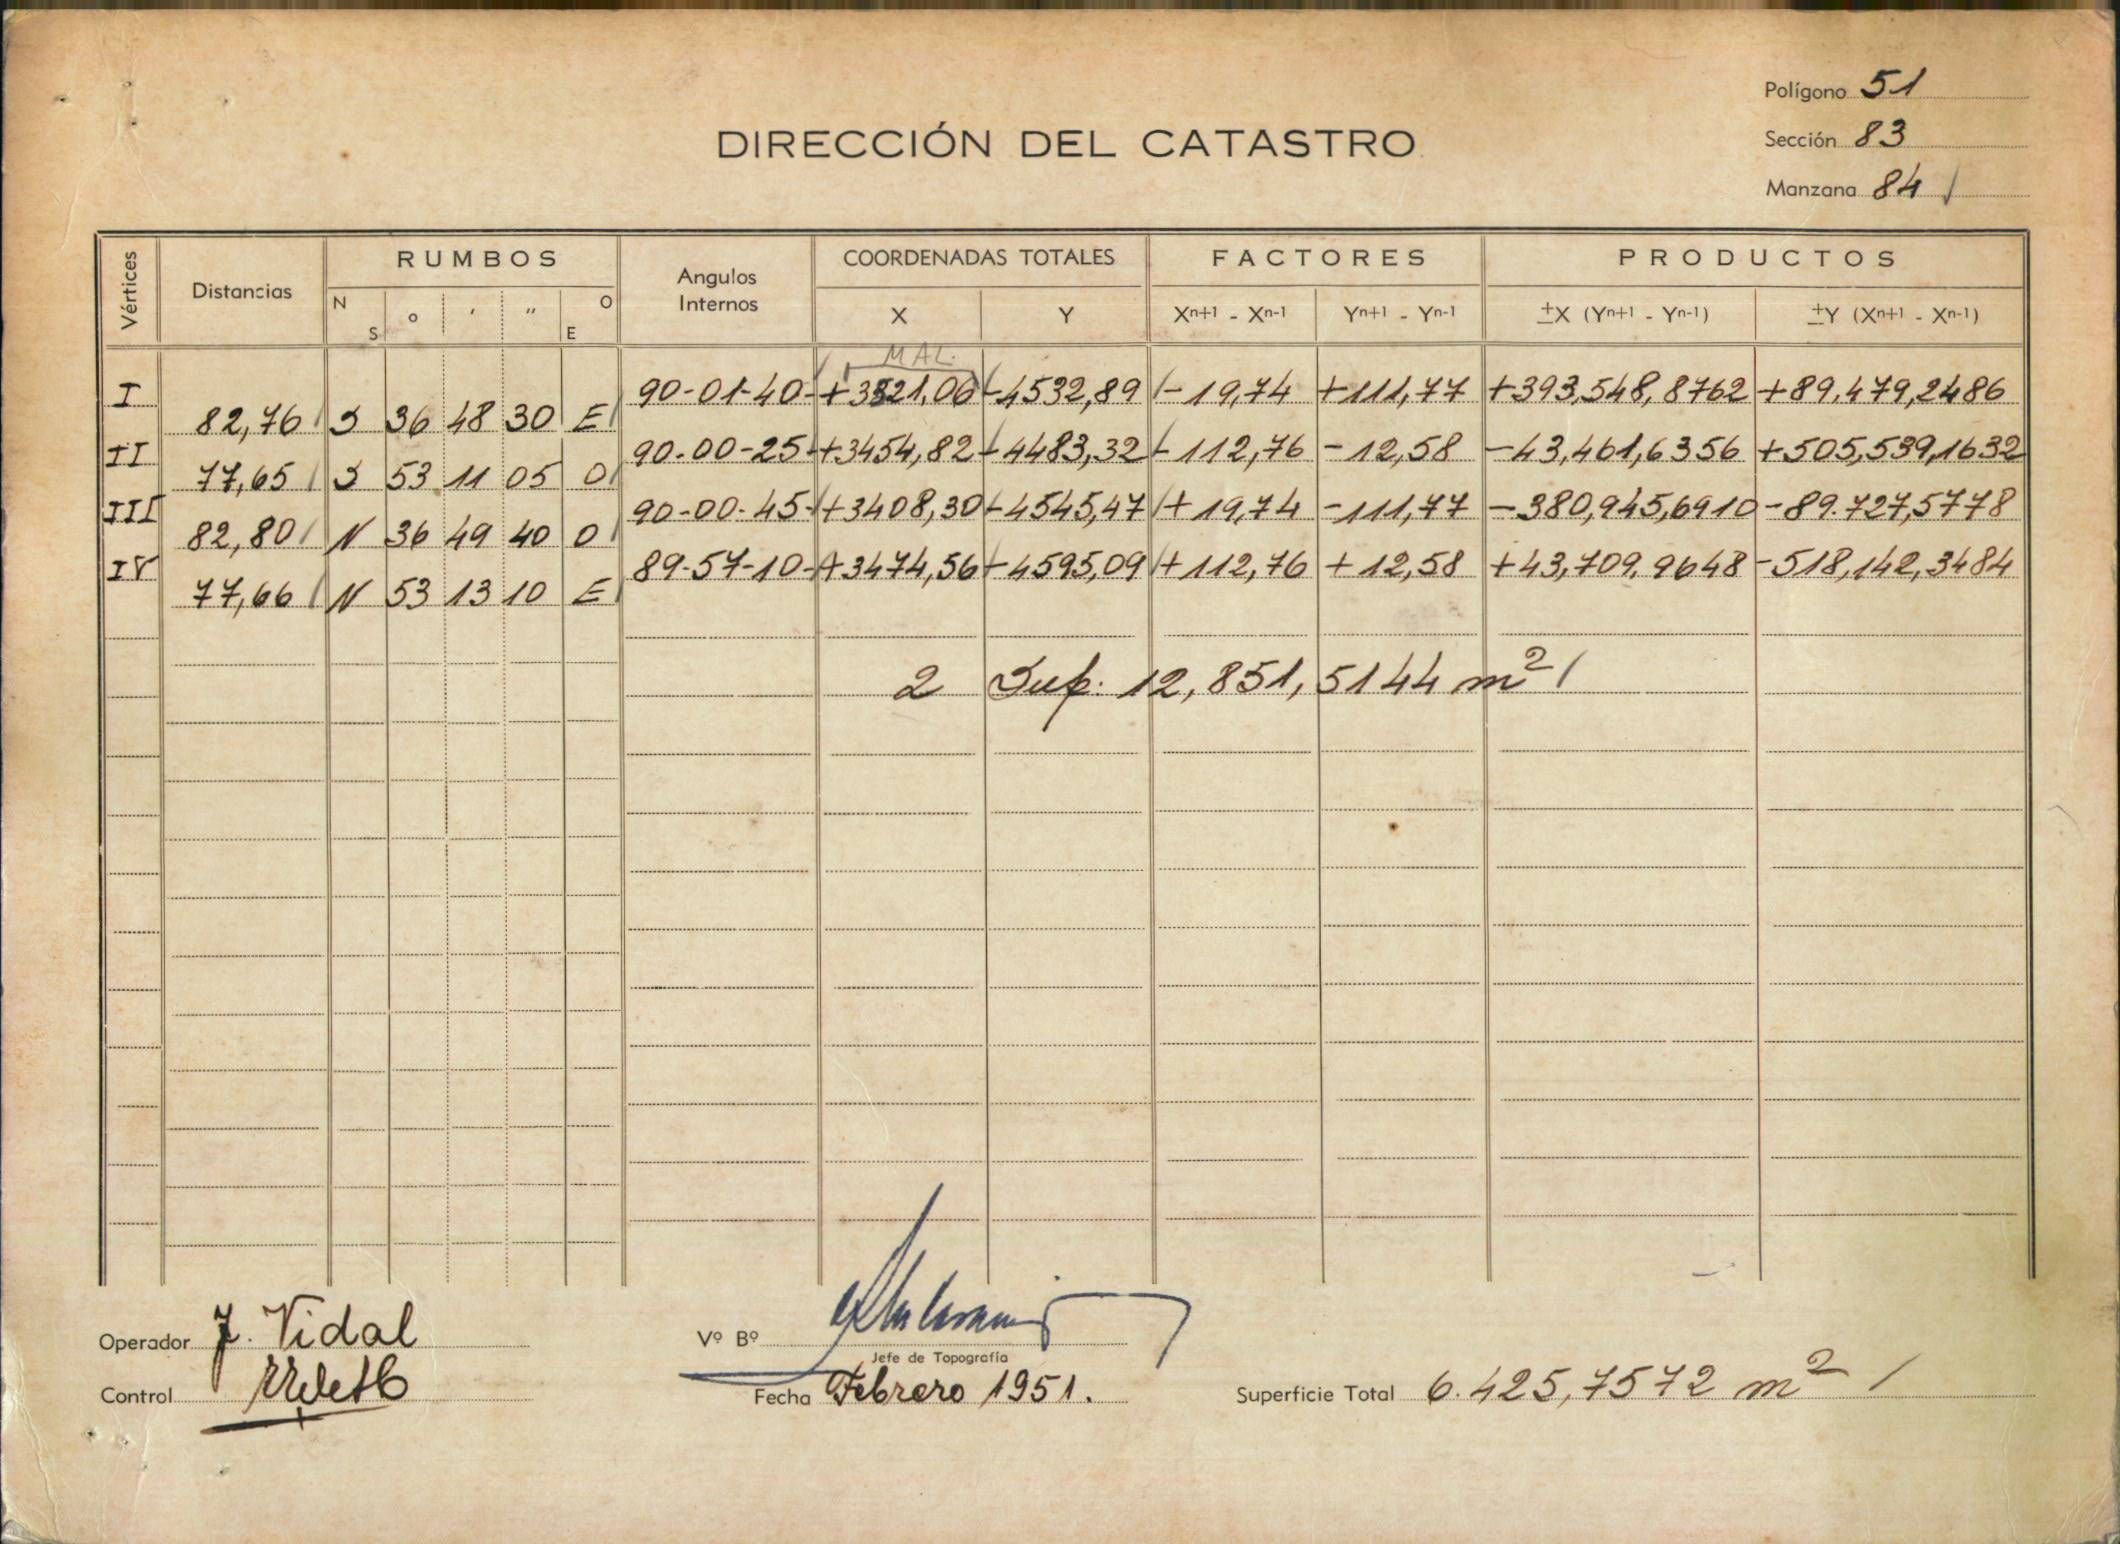 Polígono 51
DIRECCIÓN DEL CATASTRO
Sección 83
Manzana 84 /
Vértices Distancias RUMBOS Angulos Internos COORDENADAS TOTALES FACTORES PRODUCTOS
N S ° ' " O E X Y Xn+1 - Xn-1 Yn+1 - Yn-1 ±X (Yn+1 - Yn-1) ±Y (Xn+1 - Xn-1)
MAL.
I 90-01-40 +3521,06 -4532,89 -19,74 +111,77 +393,548,8762 +89.479,2486
82,76 S 36 48 30 E
II 90-00-25 +3454,82 -4483,32 -112,76 -12,58 -43,461,6356 +505,539,1632
77,65 S 53 11 05 O
III 90-00-45 +3408,30 -4545,47 +19,74 -111,77 -380,945,6910 -89.727,5778
82,80 N 36 49 40 O
IV 89-57-10 +3474,56 -4595,09 +112,76 +12,58 +43,709,9648 -518,142,3484
77,66 N 53 13 10 E
2 Sup. 12,851,5144 m² /
Operador J. Vidal Vº Bº
Jefe de Topografía
Control Fecha Febrero 1951. Superficie Total 6.425,7572 m² /